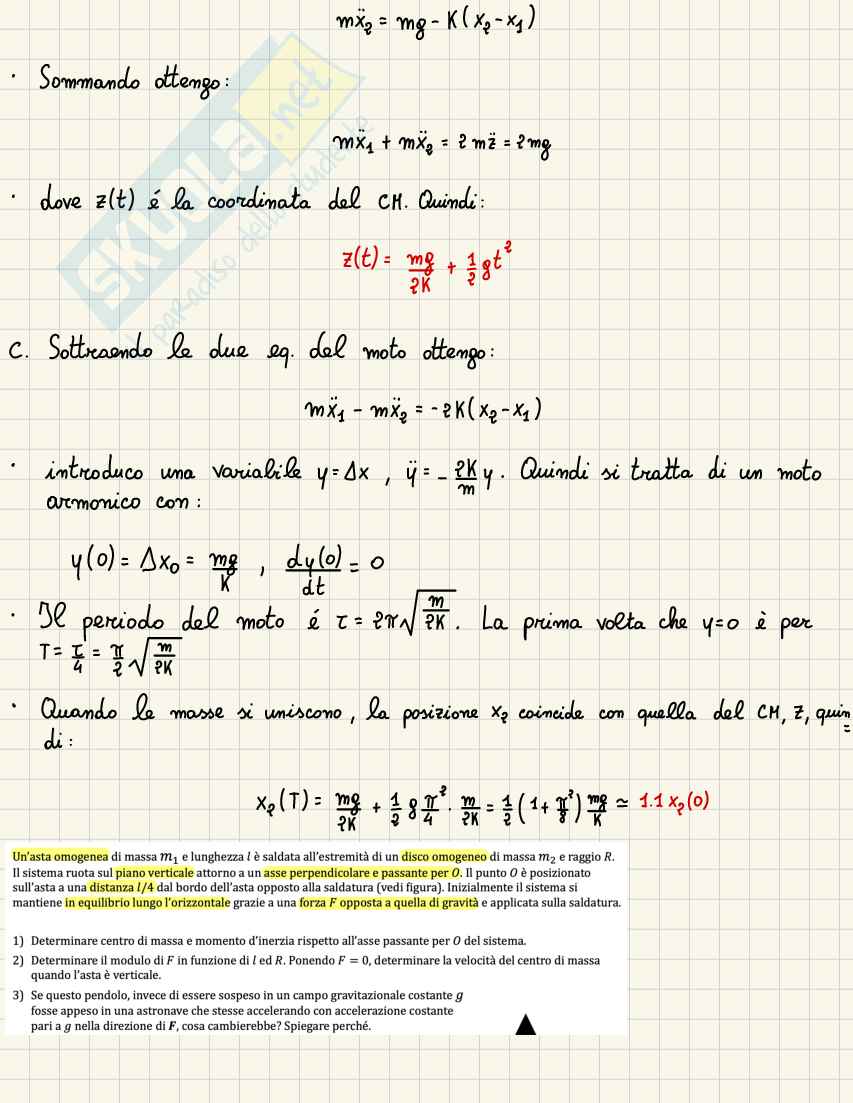 mẍ₂ = mg - K(x₂-x₁)
· Sommando ottengo:
mẍ₁ + mẍ₂ = 2mz̈ = 2mg
· dove z(t) é la coordinata del CM. Quindi:
z(t) = mg/2K + 1/2 gt²
C. Sottraendo le due eq. del moto ottengo:
mẍ₁ - mẍ₂ = -2K(x₂-x₁)
· introduco una variabile y=Δx , ÿ = - 2K/m y. Quindi si tratta di un moto
armonico con:
y(0) = Δx₀ = mg/K , dy(0)/dt = 0
· Il periodo del moto é τ = 2π√(m/2K). La prima volta che y=0 è per
T = τ/4 = π/2 √(m/2K)
· Quando le masse si uniscono, la posizione x₂ coincide con quella del CM, z, quin=
di:
x₂(T) = mg/2K + 1/2 g π²/4 · m/2K = 1/2 (1 + π²/8) mg/K ≃ 1.1 x₂(0)
Un'asta omogenea di massa m₁ e lunghezza l è saldata all'estremità di un disco omogeneo di massa m₂ e raggio R.
Il sistema ruota sul piano verticale attorno a un asse perpendicolare e passante per O. Il punto O è posizionato
sull'asta a una distanza l/4 dal bordo dell'asta opposto alla saldatura (vedi figura). Inizialmente il sistema si
mantiene in equilibrio lungo l'orizzontale grazie a una forza F opposta a quella di gravità e applicata sulla saldatura.
1) Determinare centro di massa e momento d'inerzia rispetto all'asse passante per O del sistema.
2) Determinare il modulo di F in funzione di l ed R. Ponendo F = 0, determinare la velocità del centro di massa
quando l'asta è verticale.
3) Se questo pendolo, invece di essere sospeso in un campo gravitazionale costante g
fosse appeso in una astronave che stesse accelerando con accelerazione costante
pari a g nella direzione di F, cosa cambierebbe? Spiegare perché.
SKUOLA.net
paradiso dello studente